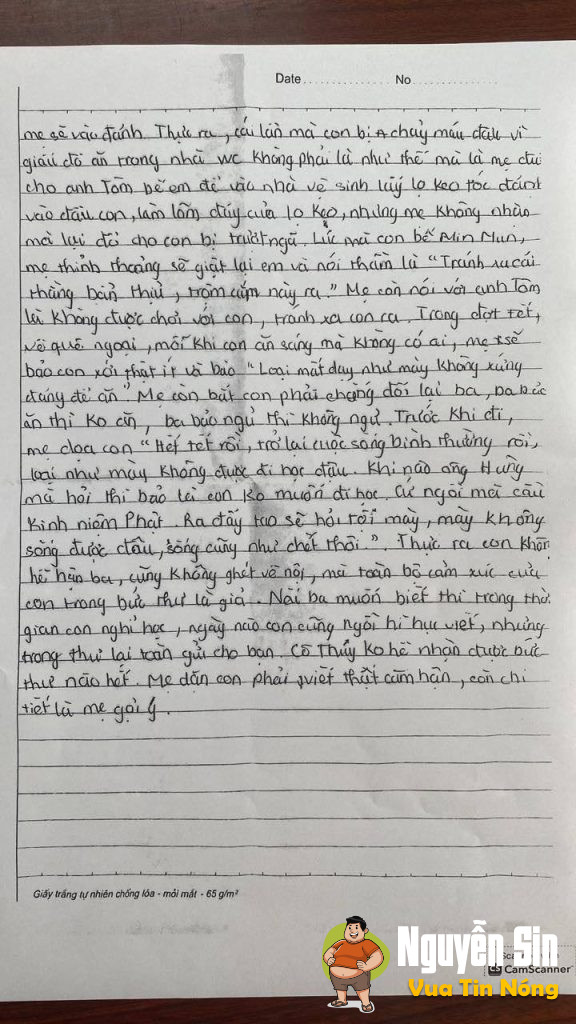 Date No
mẹ sẽ vào đánh. Thực ra, cái lần mà con bị chảy máu đầu vì
giấu đồ ăn trong nhà wc không phải là như thế mà là mẹ đưa
cho anh Tôm bế em để vào nhà vệ sinh lấy lọ keo tóc đánh
vào đầu con, làm lõm đáy của lọ keo, nhưng mẹ không nhận
mà lại đổ cho con bị trượt ngã. Lúc mà con bế Min Mun,
mẹ thỉnh thoảng sẽ giật lại em và nói thầm là "Tránh xa cái
thằng bẩn thỉu, trộm cắm này ra." Mẹ còn nói với anh Tôm
là không được chơi với con, tránh xa con ra. Trong đợt tết,
về quê ngoại, mỗi khi con ăn sáng mà không có ai, mẹ sẽ
bảo con xới thật ít và bảo "Loại mất dạy như mày không xứng
đáng để ăn". Mẹ còn bắt con phải chống đối lại ba, ba bảo
ăn thì ko ăn, ba bảo ngủ thì không ngủ. Trước khi đi,
mẹ dọa con "Hết tết rồi, trở lại cuộc sống bình thường rồi,
loại như mày không được đi học đâu. Khi nào ông Hưng
mà hỏi thì bảo là con ko muốn đi học. Cứ ngồi mà cầu
kinh niệm Phật. Ra đấy tao sẽ hỏi tội mày, mày không
sống được đâu, sống cũng như chết thôi.". Thực ra con không
hề hận ba, cũng không ghét về nội, mà toàn bộ cảm xúc của
con trong bức thư là giả. Nói ba muốn biết thì trong thời
gian con nghỉ học, ngày nào con cũng ngồi hì hục viết, nhưng
trong thư lại toàn gửi cho bạn. Cô Thúy ko hề nhận được bức
thư nào hết. Mẹ dặn con phải viết thật căm hận, còn chi
tiết là mẹ gợi ý.
Giấy trắng tự nhiên chống lóa - mỏi mắt - 65 g/m²
Nguyễn Sin
Vua Tin Nóng
CS CamScanner